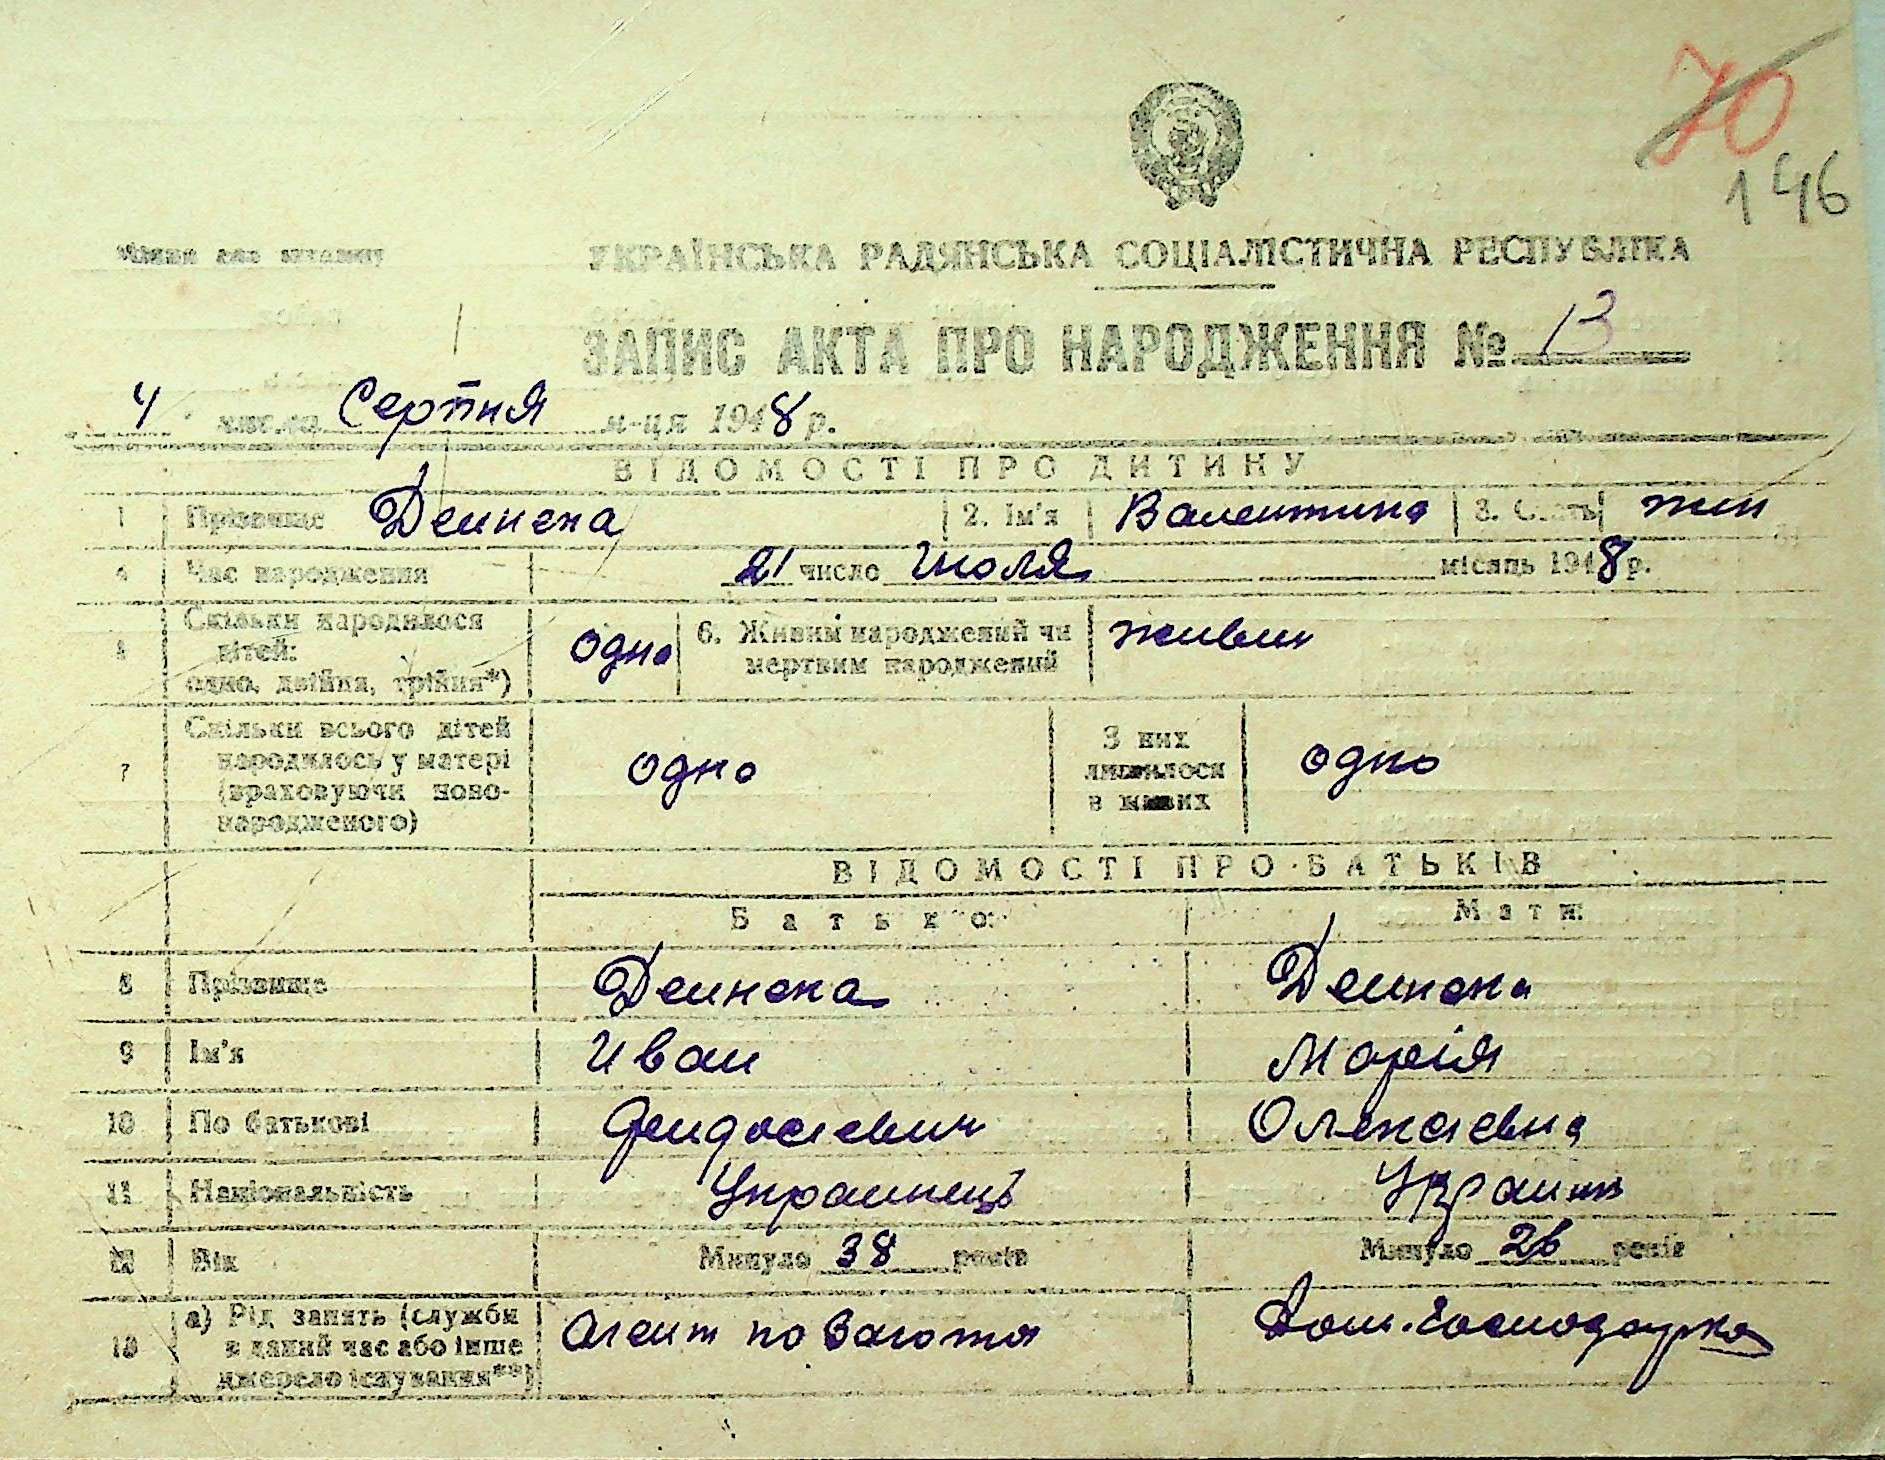 70
146
УКРАЇНСЬКА РАДЯНСЬКА СОЦІАЛІСТИЧНА РЕСПУБЛІКА
ЗАПИС АКТА ПРО НАРОДЖЕННЯ № 13
4 числа Серпня м-ця 1948 р.
ВІДОМОСТІ ПРО ДИТИНУ
1 Прізвище Деинека 2. Ім'я Валентина 3. Стать жин
4 Час народження 21 число Июля місяць 1948 р.
5 Скільки народилося дітей: одно, двійня, трійня*) одно 6. Живим народжений чи мертвим народжений живим
7 Скільки всього дітей народилось у матері (враховуючи новонародженого) одно З них лишилося в живих одно
ВІДОМОСТІ ПРО БАТЬКІВ
Батько: Мати:
8 Прізвище Деинека Деинека
9 Ім'я Иван Марія
10 По батькові Феидосиевич Олексіевна
11 Національність Украинець
12 Вік Минуло 38 років Минуло 26 років
13 а) Рід занять (служби в даний час або інше джерело існування**) Агент по Заготя Дом. господарка